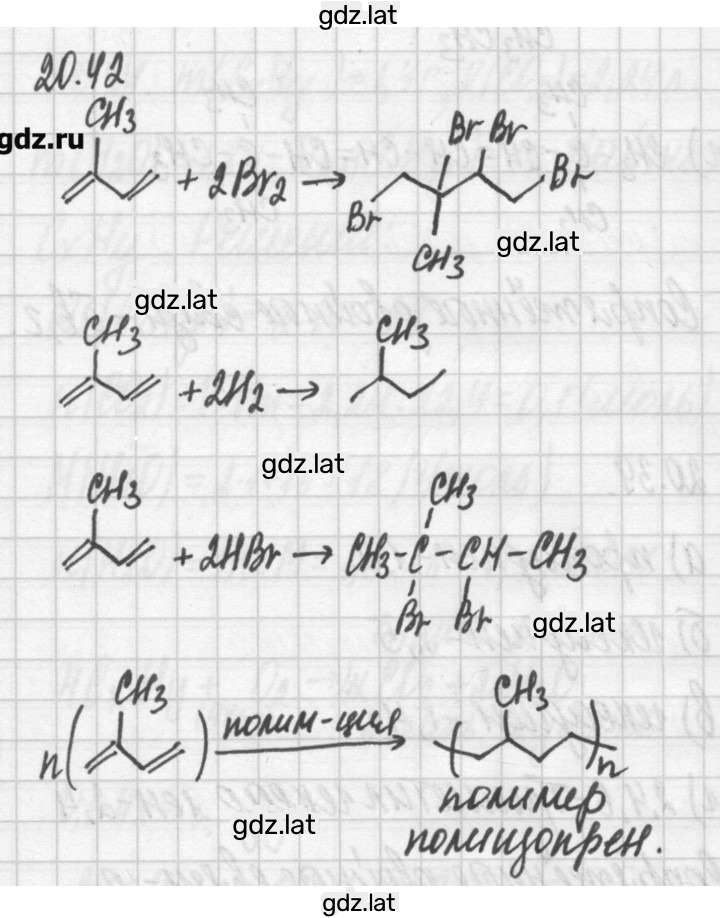 gdz.lat
20.42
gdz.ru
CH3
+ 2Br2 →
Br Br
Br
Br
CH3
gdz.lat
gdz.lat
CH3
+ 2H2 →
CH3
gdz.lat
CH3
+ 2HBr →
CH3
CH3-C-CH-CH3
Br Br
gdz.lat
n( CH3 ) полим-ция → ( CH3 )n
полимер
gdz.lat
полиизопрен.
gdz.lat